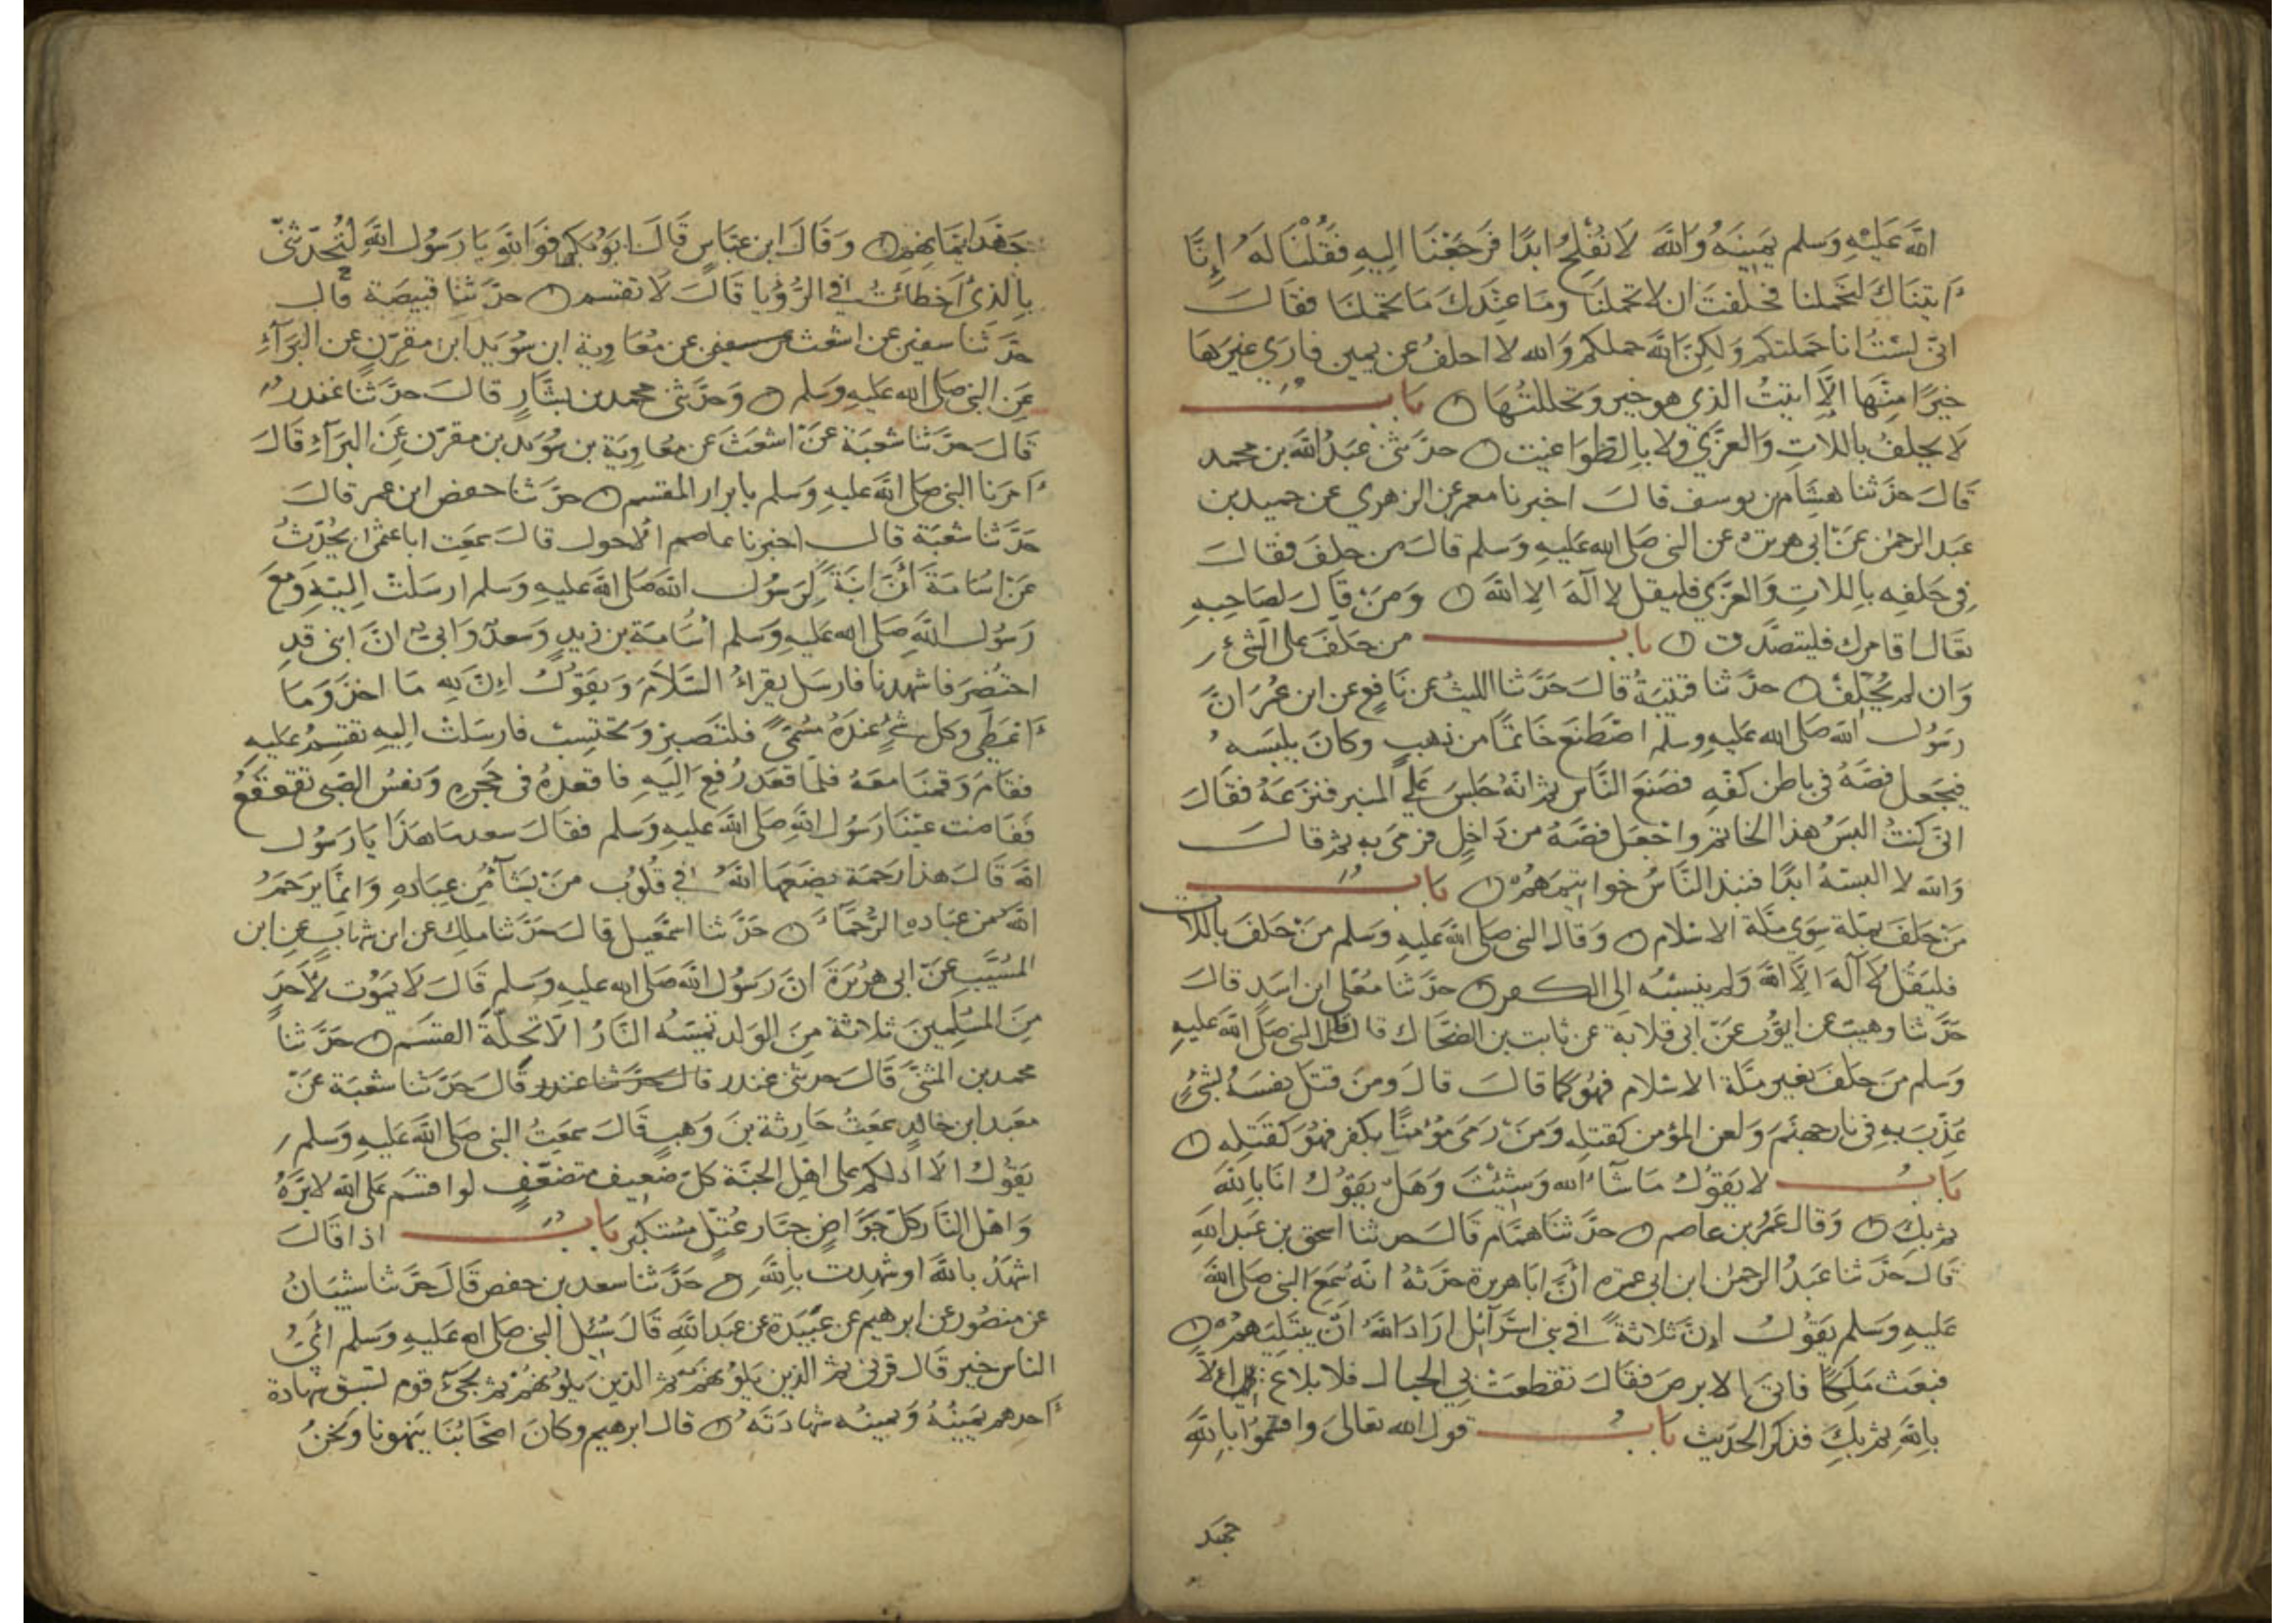 الله عَلَيْهِ وَسلم يَمِينَهُ وَاللَّه لَا نُفْلِحُ ابدًا فَرَجَعْنَا اليهِ فَقُلْنَا لهُ إِنَّا
اَتيناكَ لتحملنا فحلفتَ ان لا تحملنا وما عندك مَا تحملنا فقالَ
انّى لسْتُ انا حَملتكم وَلكنّ اللَّه حملكم وَالله لا احلفُ عن يمين فارَي غيرَهَا
خيرًا منْهَا الَّا اتيتُ الذي هو خير وَتحللتُهَا ن بَابٌ
لَا يحلفُ باللاتِ وَالعزَّي ولا بالطواغيت ن حدَّثنى عَبدُ اللَّه بن محمد
قَالَ حدّثنا هشام بن يوسف قالَ اخبرنا معمر عن الزهري عن حميد بن
عبَد الرحمٰن عنْ ابى هريرة عن النبى صَلى الله عَليهِ وَسلم قالَ من حلفَ فقالَ
فِى حَلفِه باللاتِ وَالعزَّي فليقل لا الَه الا الله ن وَمنْ قال لصَاحِبِهِ
تعَال اقامرك فليتصَدّق ن بَابُ من حلفَ على الشىء
وَان لم يُحَلَّفْ ن حدَّثنا قتيبَةُ قالَ حَدَّثنا الليثُ عن نَافعٍ عن ابن عُمَر انَّ
رَسُول الله صَلى الله عَليهِ وسلم اصْطنَعَ خَاتمًا من ذهبٍ وكانَ يلبَسهُ
فيجعل فصَّهُ في باطن كفّهِ فصَنعَ النَّاس ثم انهُ جلسَ عَلي المنبر فنزعَهُ فقالَ
انّى كنتُ البسُ هذا الخاتم واجْعَل فصّهُ من دَاخلٍ فرَمَى به ثم قالَ
وَالله لا البسهُ ابدًا فنبذ النَّاسُ خواتيمهمْ ن بَابُ
مَنْ حلفَ بملّة سِوَي ملّة الاسْلام ن وَقال النبى صَلى اللَّه عَليهِ وَسلم مَنْ حَلفَ باللات
فليَقُل لَا الَهَ الَّا اللَّه وَلم ينسُبْهُ إِلى الكفر ن حدَّثنا مُعَلّى ابن اسَدٍ قالَ
حَدَّثنا وهيبٌ عن ايّوبَ عنْ ابى قلابة عن ثابت بن الضحّاك قال قال النبى صَلى اللَّه عَليهِ
وَسلم منَ حلفَ بغير ملّة الاسْلام فهُوَ كما قالَ قالَ ومنَ قتل نفسَهُ بشىءٍ
عُذّبَ بهِ فى نار جهنّمَ وَلعن المؤمن كقتلِه وَمنْ رَمَى مؤمنًا بكفرٍ فهُوَ كقتلِه ن
بَابُ لا يقوُلُ مَا شَاءَ الله وَشئتَ وَهَل يقوُلُ انَا باللَّه
ثم بكَ ن وَقال عَمرُ بن عاصم ن حدَّثنَا همّام قالَ حدثنا اسحق بن عَبد الله
قالَ حدَّثنا عَبدُ الرحمٰن ابن ابى عمرة أنَّ ابا هريرة حدَّثهُ انّه سَمعَ النبى صَلى اللَّه
عَليهِ وَسلم يقوُلُ إنَّ ثلاثةً في بنى اسْرَآئل ارَادَ اللَّهُ انْ يبتَليهمْ ن
فبعَث مَلَكًا فاتَى الابرصَ فقالَ تقطعَتْ بي الحبال فلا بلاغ الا
باللَّهِ ثم بكَ فذكر الحدَيث بَابُ قول الله تعالى واقسَمُوا باللَّهِ
جهد
جَهْدَ ايمَانهم ن وَقَالَ ابن عَبَّاسٍ قَالَ ابوُ بكرٍ فوَاللهِ يَا رَسُول اللَّه لتُحدّثنّى
بالذى اَخطَأتُ في الرُّؤيا قَالَ لَا تقسم ن حدَّثنا قبيصَة قال
حدَّثنا سفين عن اشعث عن معَاوية ابن سُوَيد ابن مقرّنٍ عن البرَآءِ
عَنِ النبى صَلى الله عَليهِ وسَلم ن وَحَدَّثنى محمد بن بشَّارٍ قالَ حدَّثنا غندرٌ
قَالَ حدَّثنا شعبَة عنْ اشعَثَ عن معَاوِيَة بن سُوَيد بن مقرّن عن البَرَآءِ قالَ
اَمرَنا النبى صَلى اللَّه عَليهِ وَسلم بابرار المقسم ن حدَّثنا حفص ابن عمر قالَ
حدَّثنا شعبَة قال اخبرنا عاصم الاحول قالَ سمعت ابا عثمٰن يُحدّثُ
عَنْ اسَامَة أَنَّ ابنَةً لِرَسُول اللَّه صَلى اللَّه عَليهِ وَسلم ارسَلتْ الِيْهِ وَمعَ
رَسُول اللَّهِ صَلى الله عَليهِ وَسلم أسَامَة بن زيدٍ وَسعدٌ وَابىّ انَّ ابنى قدِ
احتُضِرَ فاشهدنا فارسَل يقراءُ السَّلَامَ وَيقوُلُ إنَّ للهِ مَا اخذ وَمَا
اَعْطَي وكل شىءٍ عندَهُ مُسَمًّى فلتَصبرْ وَتحتسِبْ فارسَلتْ اليهِ تقسمُ عليهِ
فقامَ وَقمنَا معَهُ فلمّا قعَد رُفعَ اليَهِ فاقعدهُ فى حَجرِهِ وَنفسُ الصَّبى تقعقعُ
ففَاضت عيْنا رَسُول اللَّهِ صَلى اللَّه عَليهِ وَسلم فقالَ سعد مَا هَذا يَا رَسُول
اللَّه قَالَ هذا رَحمَة يضعهَا اللَّهُ في قُلوُب مَنْ يَشآءُ مِن عِبَادِهِ وَانمّا يرحَمُ
اللَّه من عبَادهِ الرُّحمَآءَ ن حَدَّثنا اسمٰعيل قالَ حَدَّثنا مالِك عن ابن شهابٍ عن ابن
المسَيَّب عنْ ابى هُرَيْرَةَ انَّ رَسُول اللَّه صَلى الله عَليهِ وَسلم قَالَ لَا يَمُوت لأحَدٍ
مِنَ المسْلِمينَ ثلاثة مِنَ الوَلد تمسّهُ النَّارُ الَّا تَحِلّةَ القسَم ن حدَّثنا
محمد بن المثنَّى قَالَ حدثنى غندر قال حدّثنا غندر قَالَ حَدَّثنا شعْبَة عنْ
معَبد ابن خالدٍ سمعَتُ حَارثة بنَ وَهبٍ قَالَ سمعَتُ النبى صَلى اللَّه عَليهِ وَسلم
يَقوُلُ الَا ادلكم على اهْلِ الجنَّة كلّ ضعيف متضعّفٍ لو اقسَم عَلى الله لابرَّهُ
وَاهْل النَّار كلّ جَوَّاضٍ جبَّار عُتُلٍّ مُسْتكبر بَابُ اذا قَالَ
اشهَدُ باللَّه او شَهِدت باللَّهِ ن حَدَّثنا سعد بن حفص قَالَ حدَّثنا شيبَانُ
عن منصُور عن ابرهيم عن عَبيدَة عن عَبد اللَّهِ قَالَ سُئل النبى صَلى الله عَليهِ وَسلم أَىُّ
الناس خير قَال قرنى ثم الذين يَلوُنهَمْ ثم الذين يَلوُنهُمْ ثم يجَئُ قوم تسْبق شهادة
اَحدهم يَمينُهُ وَيمينُه شهادَتَهُ ن قال ابرهيم وكانَ اصْحَابُنَا ينهونا وَنحنُ